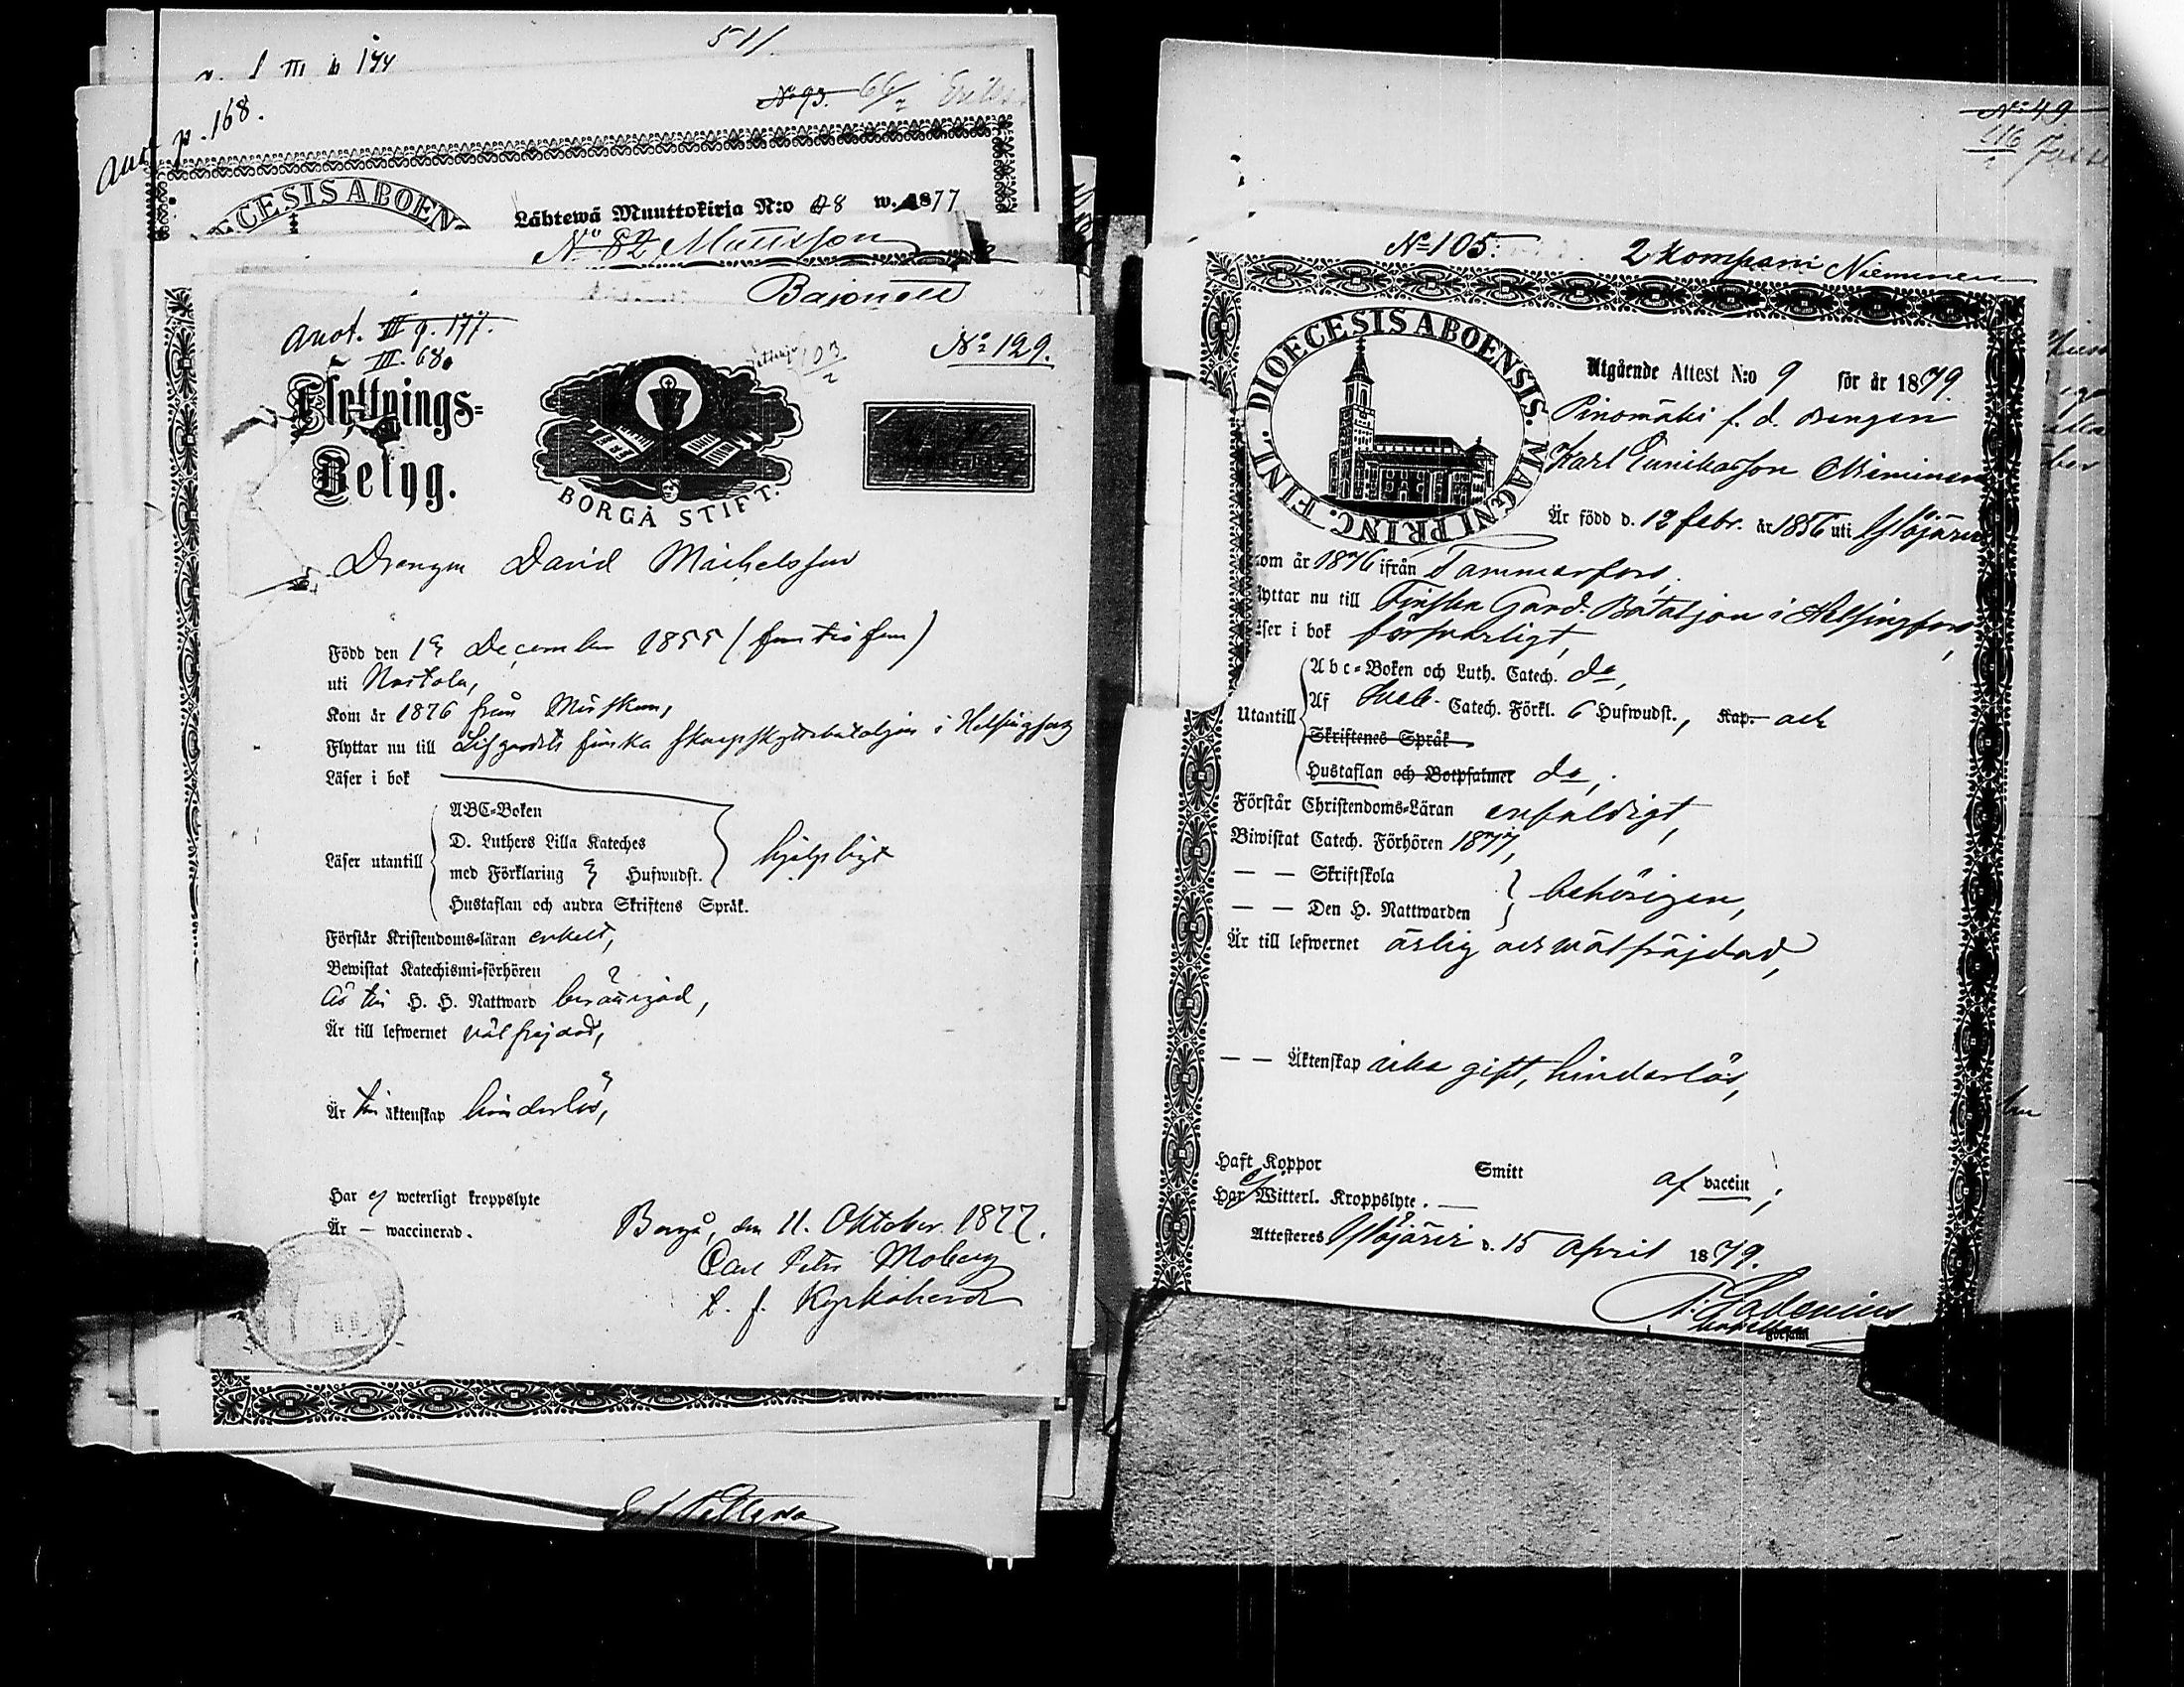 511
III b 144
p. 168.
N:o 93. 66/2
DIOECESIS ABOEN
Lähtewä Muuttokirja N:o 48 w. 1877
N:o 82 Mattsson
Bajonett
Anot. III q. 177.
III. 68.
N:o 129.
103/2
Flyttnings=
Betyg.
BORGÅ STIFT.
Drengen David Michelsson
Född den 13 December 1855 (fem tio fem)
uti Nastola,
Kom år 1876 från
Flyttar nu till Lifgardets finska skarpskyttebataljon i Helsingfors
Läser i bok
Läser utantill
ABC=Boken
D. Luthers Lilla Kateches
med Förklaring 3 Hufwudst.
Hustaflan och andra Skriftens Språk.
hjelpligt
Förstår Kristendoms=läran enkelt,
Bewistat Katechismi=förhören
Är till H. H. Nattward berättigad,
Är till lefwernet välfrejdad,
Är till äktenskap hinderlös,
Har ej weterligt kroppslyte
Är — waccinerad.
Borgå, den 11. Oktober 1877.
Carl Petr. Moberg
t. f. Kyrkoherde
N:o 49
116/2
N:o 105. 2 kompani Nieminen
DIOECESIS ABOENSIS. MAGNI PRINC. FINL.
Utgående Attest N:o 9 för år 1879.
Pinomäki f. d. drengen
Karl Enniksson Nieminen
Är född d. 12 febr. år 1856 uti Ylöjärvi
kom år 1876 ifrån Tammerfors.
flyttar nu till Finska Gard. Bataljon i Helsingfors,
läser i bok försvarligt,
Utantill
Abc=Boken och Luth. Catech. do,
Af Catech. Förkl. 6 Hufwudst., Kap. och
Skriftenes Språk
Hustaflan och Botpsalmer do,
Förstår Christendoms=Läran enfaldigt,
Biwistat Catech. Förhören 1877,
— — Skriftskola
— — Den H. Nattwarden
behörigen,
Är till lefwernet ärlig och wälfräjdad,
— — Äktenskap icke gift, hinderlös,
Haft Koppor Smitt af vaccin;
Har ej Witterl. Kroppslyte. —
Attesteres Ylöjärvi d. 15 April 1879.